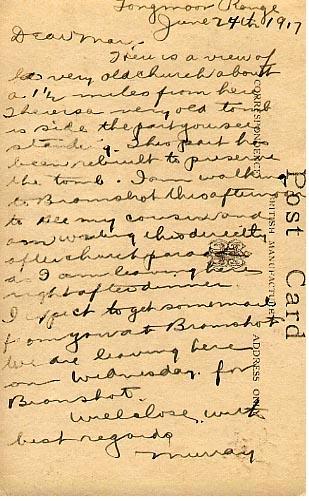 Longmoor Range
June 24th, 1917
Dear Mar.
Here is a view of
a very old church about
a 1 1/2 miles from here
Theres a very old tomb
in side the part you see
standing. This part has
been rebuilt to preserve
the tomb. I am walking
to Bramshot this afternoon
to see my cousin and
am writing this directly
after church parade
as I am leaving here
right after dinner.
I expect to get some mail
from you at Bramshot
We are leaving here
on Wednesday for
Bramshot.
Well close with
best regards
Murray
Post Card
CORRESPONDENCE
BRITISH MANUFACTURE
ADDRESS ON